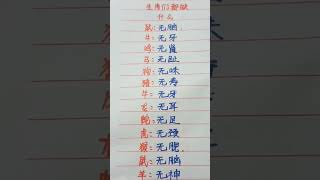 生肖们都缺
什么
鼠:无脑
牛:无牙
鸡:无肾
马:无趾
狗:无味
猪:无寿
牛:无牙
龙:无耳
蛇:无足
虎:无颈
猴:无腮
鼠:无脑
羊:无神